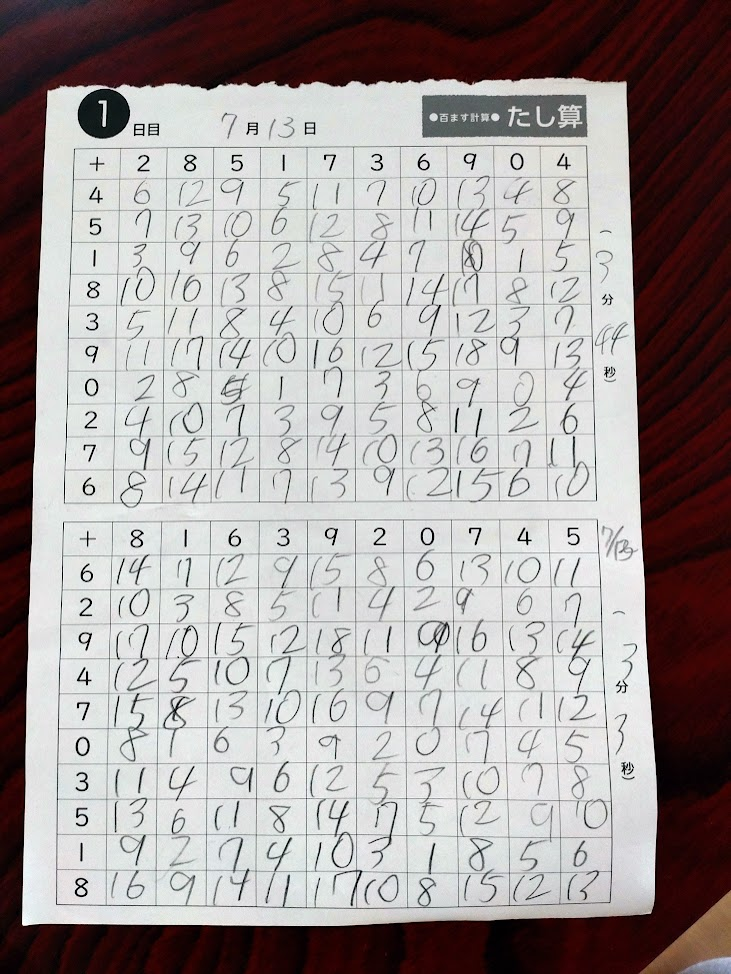 1 日目 7月13日 ●百ます計算● たし算
+ 2 8 5 1 7 3 6 9 0 4
4 6 12 9 5 11 7 10 13 4 8
5 7 13 10 6 12 8 11 14 5 9
1 3 9 6 2 8 4 7 10 1 5
8 10 16 13 8 15 11 14 17 8 12
3 5 11 8 4 10 6 9 12 3 7
9 11 17 14 10 16 12 15 18 9 13
0 2 8 5 1 7 3 6 9 0 4
2 4 10 7 3 9 5 8 11 2 6
7 9 15 12 8 14 10 13 16 7 11
6 8 14 11 7 13 9 12 15 6 10
(3分44秒)
+ 8 1 6 3 9 2 0 7 4 5
6 14 7 12 9 15 8 6 13 10 11
2 10 3 8 5 11 4 2 9 6 7
9 17 10 15 12 18 11 9 16 13 14
4 12 5 10 7 13 6 4 11 8 9
7 15 8 13 10 16 9 7 14 11 12
0 8 1 6 3 9 2 0 7 4 5
3 11 4 9 6 12 5 3 10 7 8
5 13 6 11 8 14 17 5 12 9 10
1 9 2 7 4 10 3 1 8 5 6
8 16 9 14 11 17 10 8 15 12 13
7/13
(3分3秒)